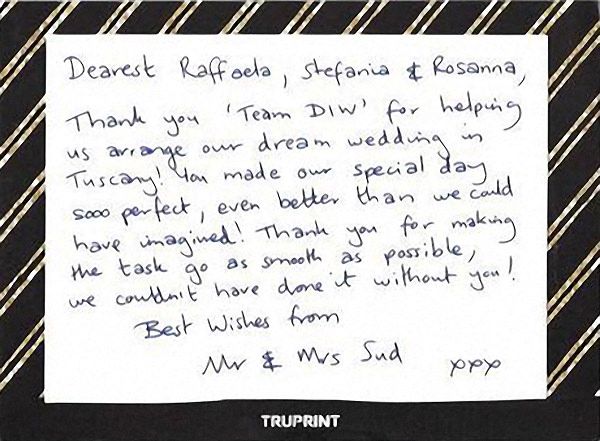 Dearest Raffaela, Stefania & Rosanna,
Thank you 'Team DIW' for helping
us arrange our dream wedding in
Tuscany! You made our special day
sooo perfect, even better than we could
have imagined! Thank you for making
the task go as smooth as possible,
we couldn't have done it without you!
Best Wishes from
Mr & Mrs Sud xxx
TRUPRINT